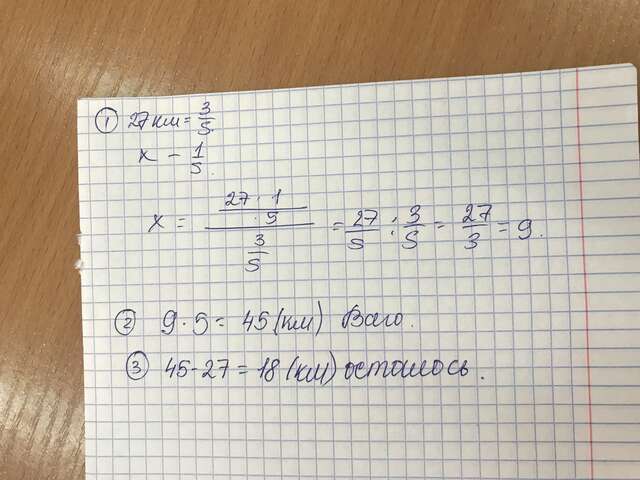 ① 27 км = 3/5
x - 1/5.
x = (27 · 1/5) / (3/5) = 27/5 : 3/5 = 27/3 = 9.
② 9 · 5 = 45 (км) Всего.
③ 45 - 27 = 18 (км) осталось.